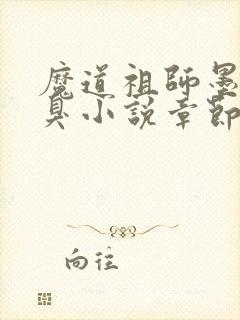 魔道祖師墨
臭小說章節
向往